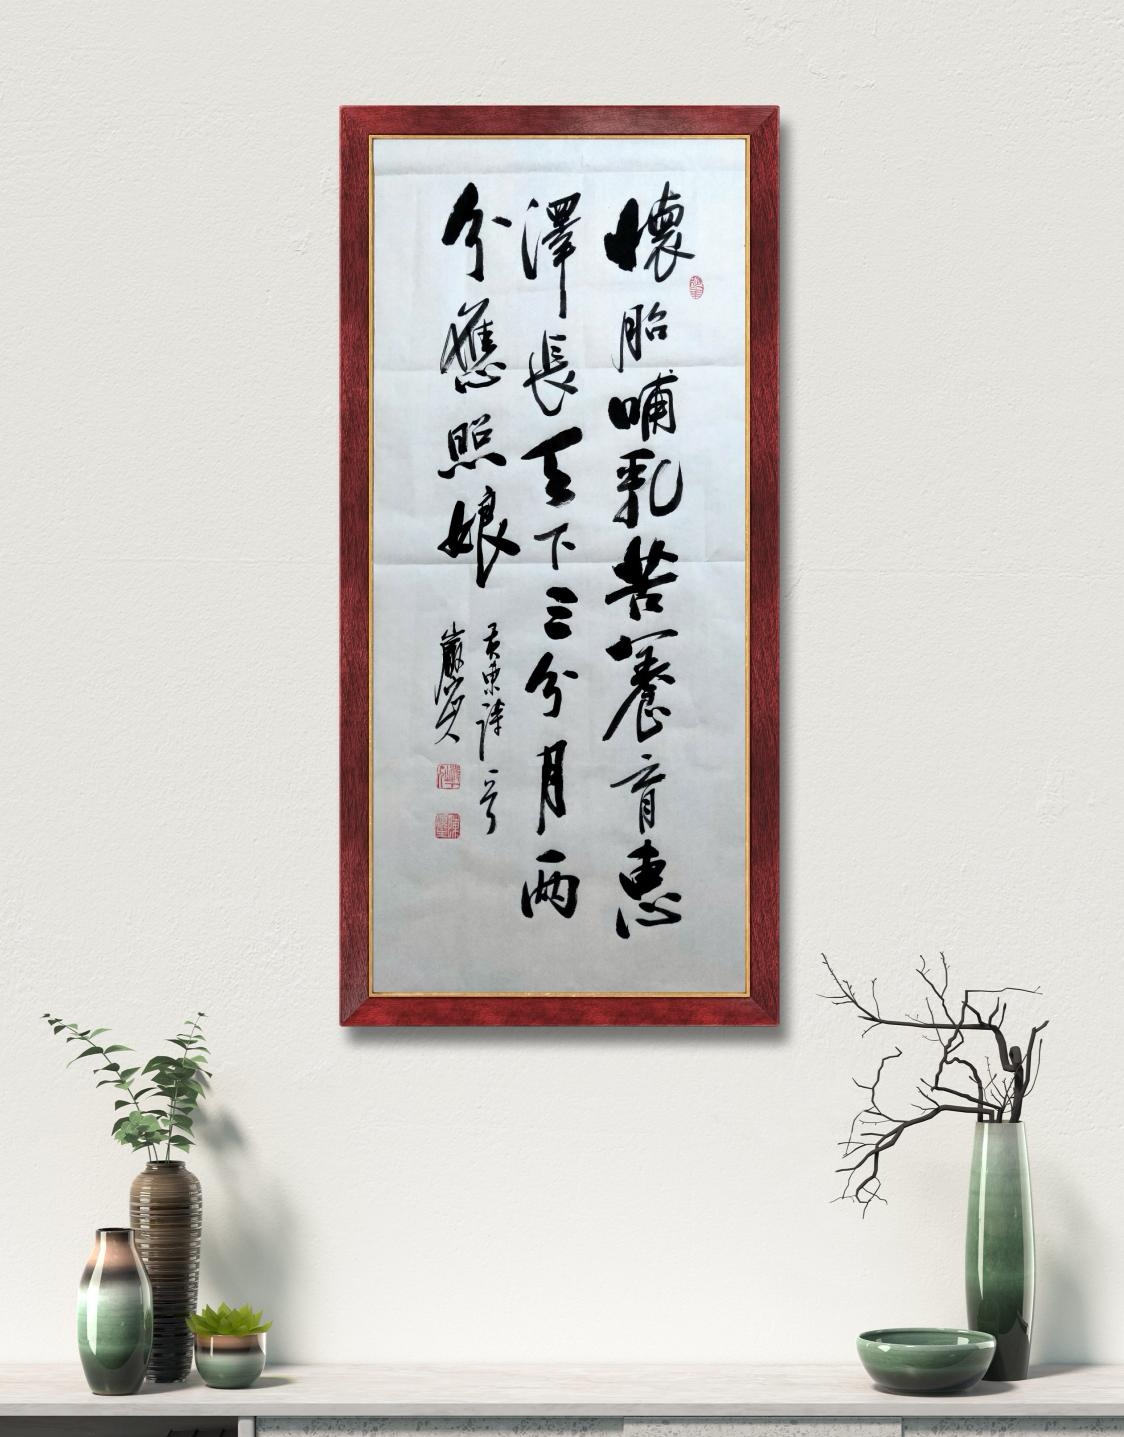 懷胎哺乳苦養育惠
澤長天下三分月兩
分應照娘
東詩一首